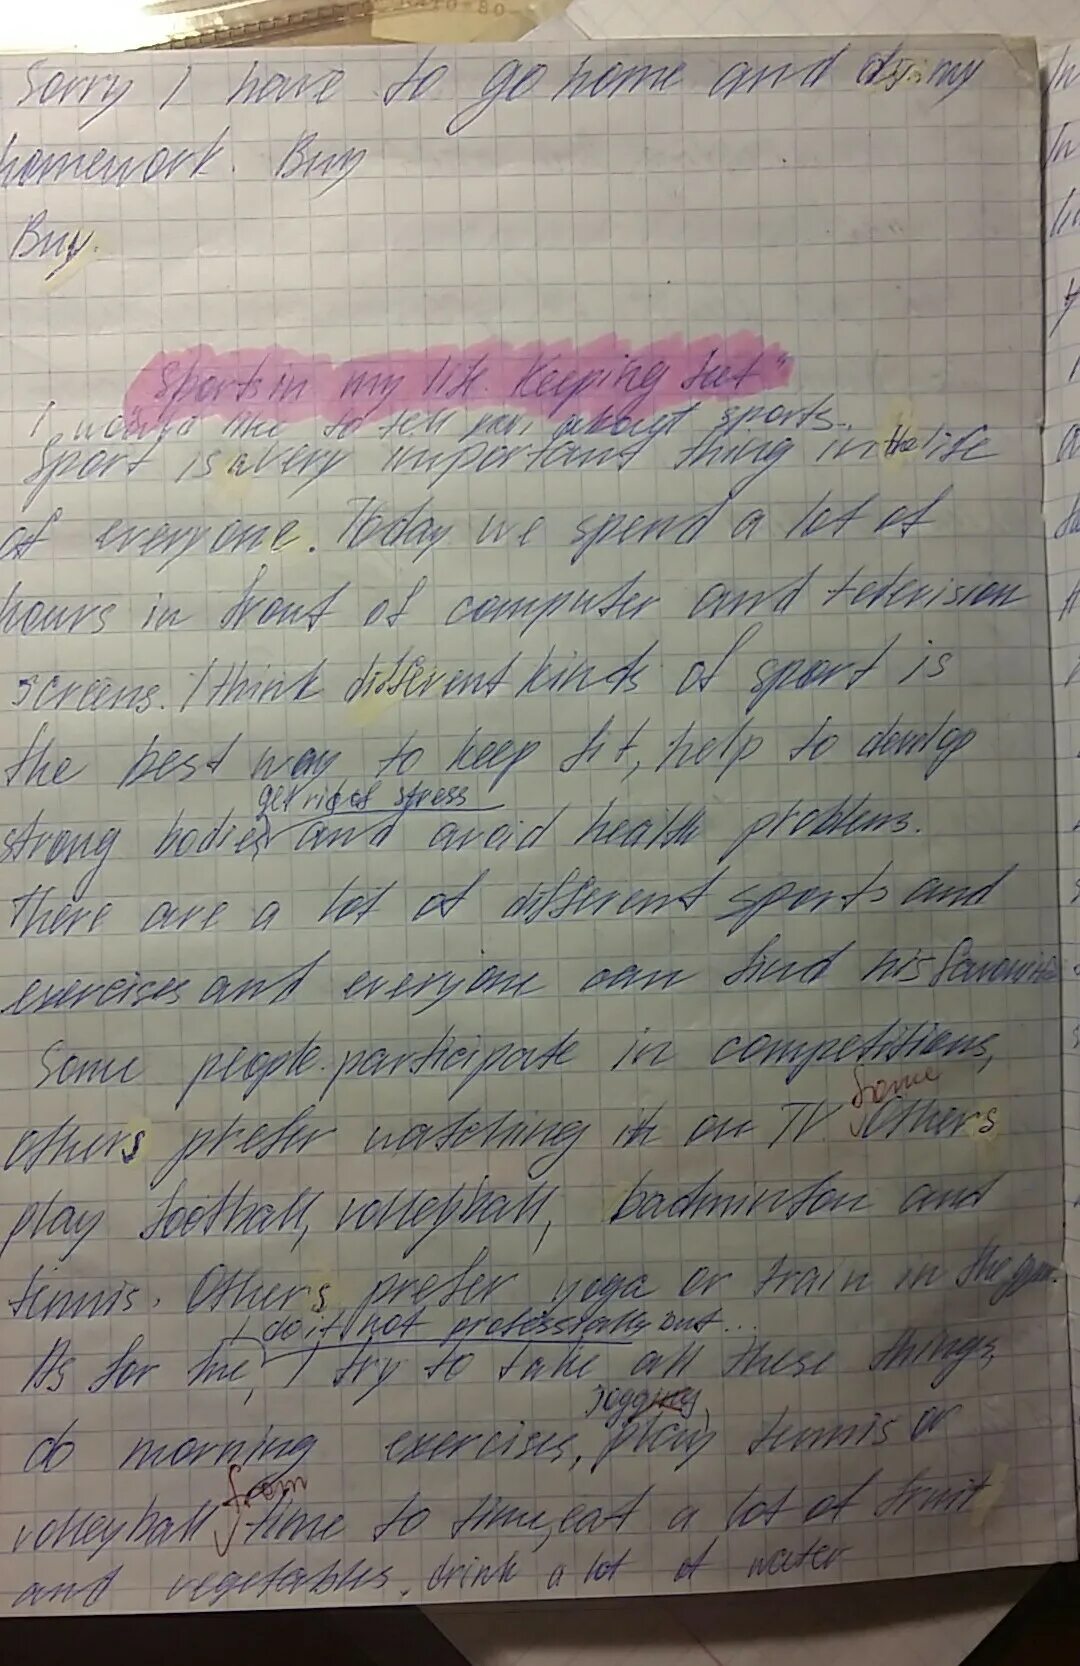 Sorry I have to go home and do my
homework. Buy
Buy.
Sports in my life. Keeping feet"
I would like to tell you about sports.
Sport is a very important thing in the life
of everyone. Today we spend a lot of
hours in front of computer and television
screens. I think different kinds of sport is
the best way to keep fit, help to develop
get rid of stress
strong bodies, and avoid health problems.
There are a lot of different sports and
exercises and everyone can find his favourite
Some people participate in competitions,
some
others prefer watching it on TV. Others
play football, volleyball, badminton and
tennis. Others prefer yoga or train in the gym.
I do it not professionally but...
As for me, I try to take all these things,
jogging,
do morning exercises, play tennis or
from
volleyball time to time, eat a lot of fruit
and vegetables, drink a lot of water